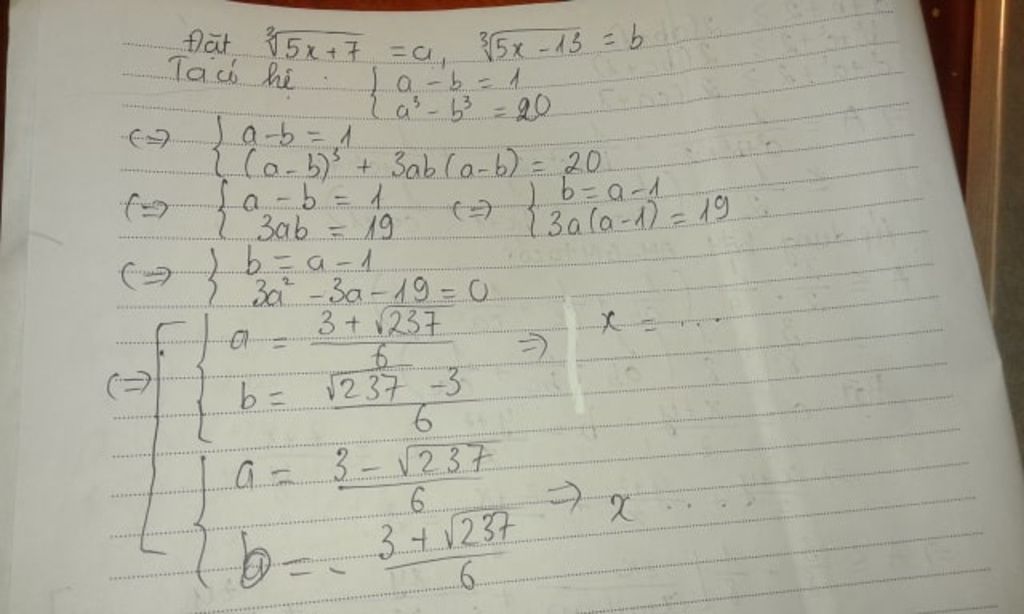 Đặt ∛(5x+7) = a, ∛(5x-13) = b
Ta có hệ : { a - b = 1
a³ - b³ = 20
(=) { a - b = 1
(a - b)³ + 3ab(a - b) = 20
(=) { a - b = 1 (=) { b = a - 1
3ab = 19 3a(a-1) = 19
(=) { b = a - 1
3a² - 3a - 19 = 0
(=) [ { a = (3 + √237)/6 => x = ...
b = (√237 - 3)/6
{ a = (3 - √237)/6 => x ....
b = - (3 + √237)/6